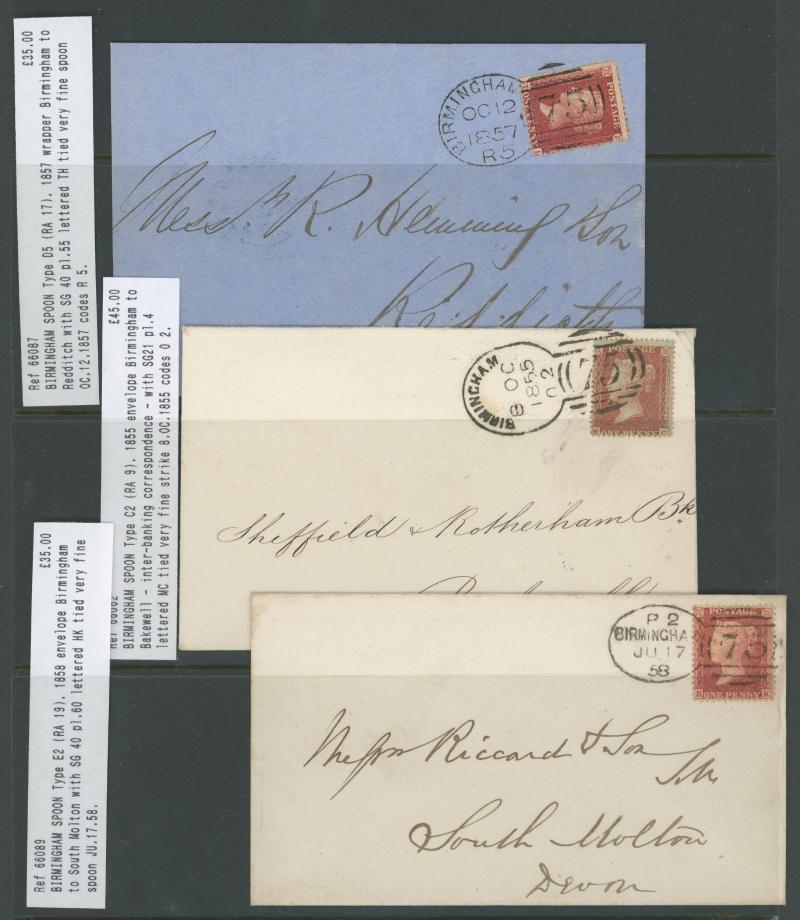 Ref 66087 £35.00
BIRMINGHAM SPOON Type D5 (RA 17). 1857 wrapper Birmingham to
Redditch with SG 40 pl.55 lettered TH tied very fine spoon
OC.12.1857 codes R 5.
BIRMINGHAM
OC 12
1857
R5
75
POSTAGE
ONE PENNY
Mess.rs R. Hemming & Son
Redditch
£45.00
BIRMINGHAM SPOON Type C2 (RA 9). 1855 envelope Birmingham to
Bakewell - inter-banking correspondence - with SG21 pl.4
lettered MC tied very fine strike 8.OC.1855 codes O 2.
BIRMINGHAM
8 OC
1855
O2
75
POSTAGE
ONE PENNY
Sheffield & Rotherham Bk
Ref 66089 £35.00
BIRMINGHAM SPOON Type E2 (RA 19). 1858 envelope Birmingham
to South Molton with SG 40 pl.60 lettered HK tied very fine
spoon JU.17.58.
P 2
BIRMINGHA
JU 17
58
75
POSTAGE
H ONE PENNY K
Messrs Riccard & Son
South Molton
Devon